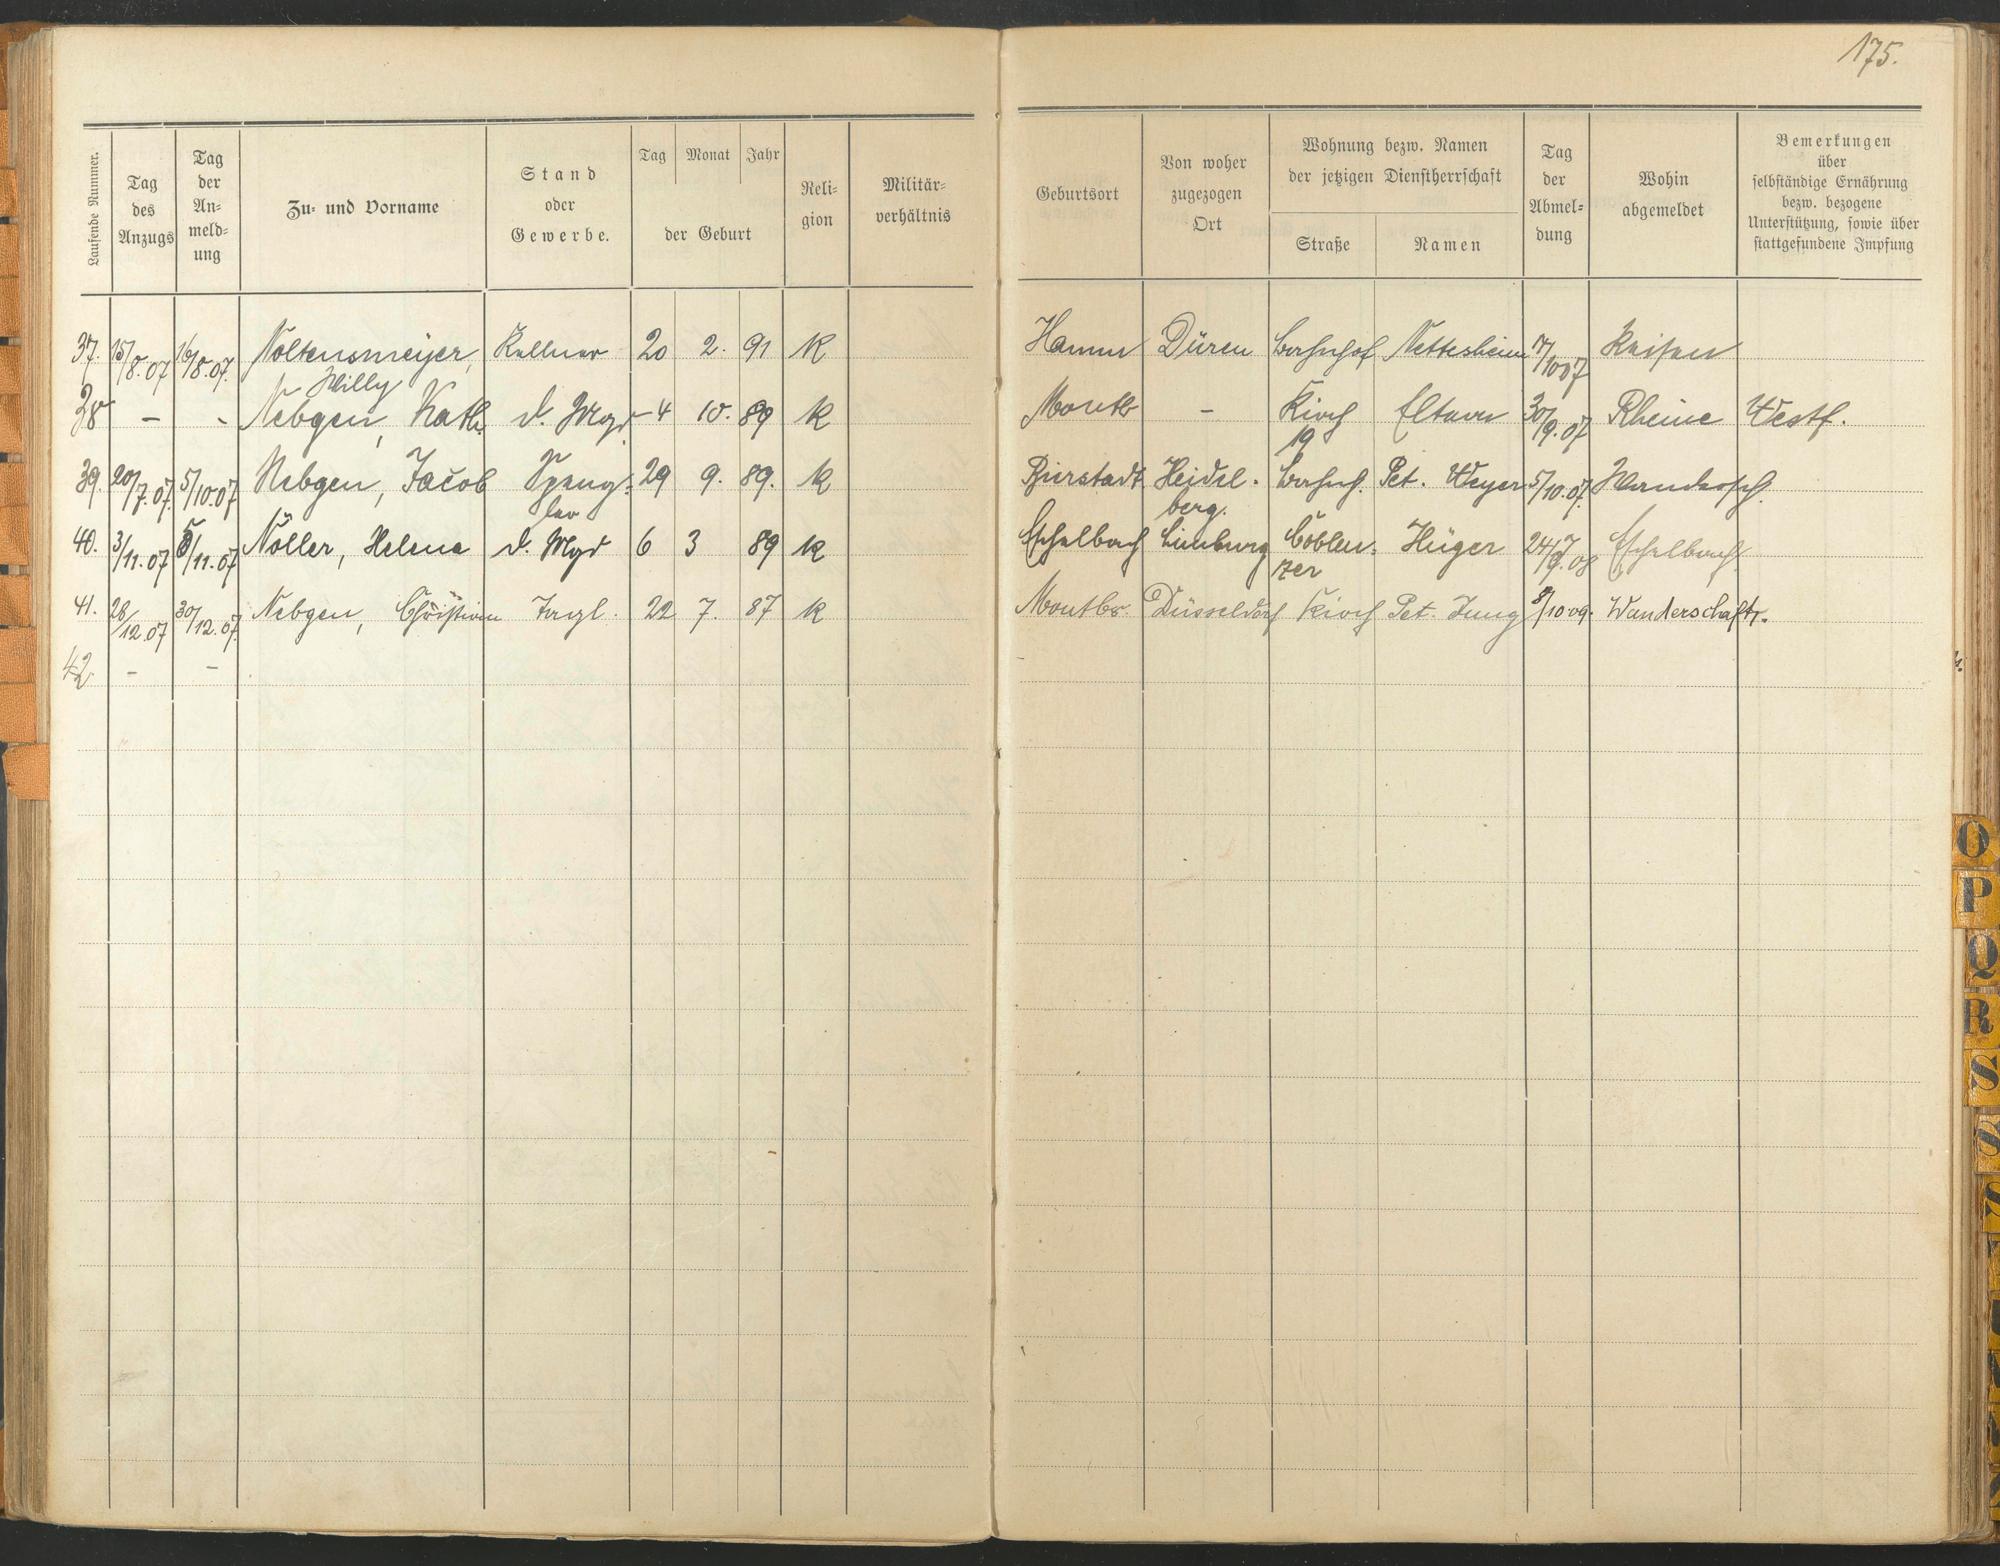 175.
Laufende Nummer.
Tag des Anzugs
Tag der An- meld- ung
Zu- und Vorname
Stand oder Gewerbe.
Tag Monat Jahr
der Geburt
Reli- gion
Militär- verhältnis
Geburtsort
Von woher zugezogen Ort
Wohnung bezw. Namen
der jetzigen Dienstherrschaft
Straße Namen
Tag der Abmel- dung
Wohin abgemeldet
Bemerkungen
über
selbständige Ernährung
bezw. bezogene
Unterstützung, sowie über
stattgefundene Impfung
37. 15/8.07 16/8.07. Noltensmeijer, Kellner 20 2. 91 K Hamm Düren Bahnhof Nettesheim 7/10 07 Reisen
Willy
38 – - Nebgen, Kath. d. Magd 4 10. 89 K Montb – Kirch Eltern 30/9.07 Rheine Westf.
19
39. 20/7.07. 5/10.07 Nebgen, Jacob Speng- 29 9. 89. K Bierstadt Heidel- Bahnh. Pet. Weyer 5/10.07. Wandersch.
ler berg.
40. 3/11.07 5/11.07 Nöller, Helena d. Magd 6 3 89 K Eschelbach Limburg Coblen- Hüger Eschelbach
zer
41. 28/12.07 30/12.07. Nebgen, Christian 22 7. 87 K Montbr. Düsseldorf Kirch Pet. Jung 8/10.09. Wanderschaft.
42 – –
O
P
Q
R
S